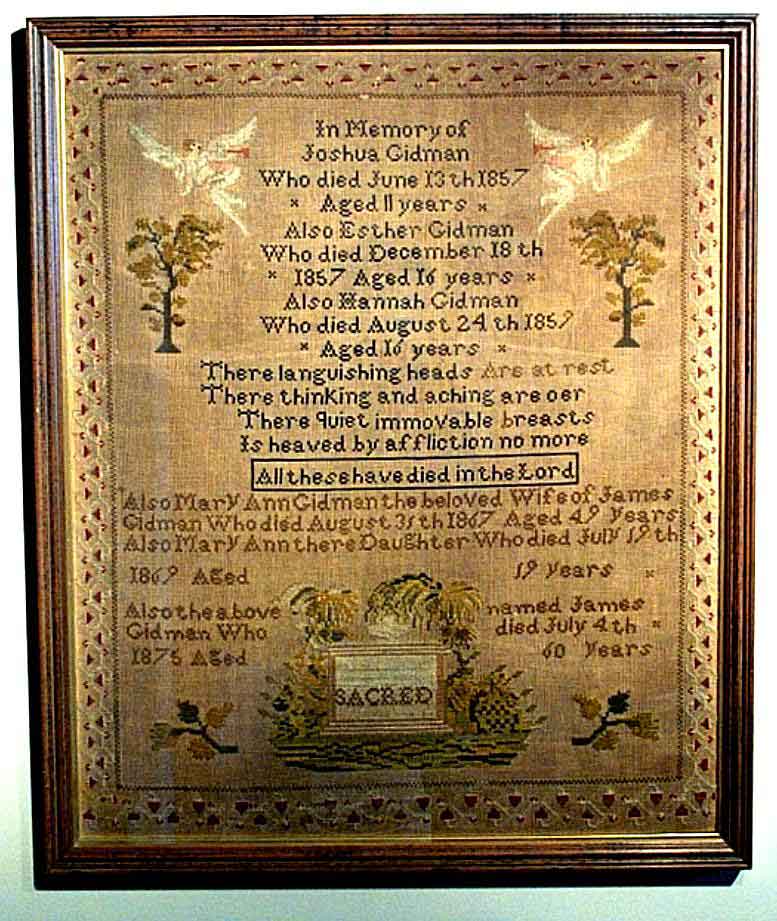 In Memory of
Joshua Gidman
Who died June 13th 1857
Aged 11 years
Also Esther Gidman
Who died December 18 th
1857 Aged 16 years
Also Hannah Gidman
Who died August 24 th 1859
Aged 16 years
There languishing heads Are at rest
There thinking and aching are oer
There quiet immovable breasts
Is heaved by affliction no more
All these have died in the Lord
Also Mary Ann Gidman the beloved Wife of James
Gidman Who died August 31th 1867 Aged 49 years
Also Mary Ann there Daughter Who died July 19th
1869 Aged 19 years
Also the above named James
Gidman Who died July 4th
1876 Aged 60 years
SACRED